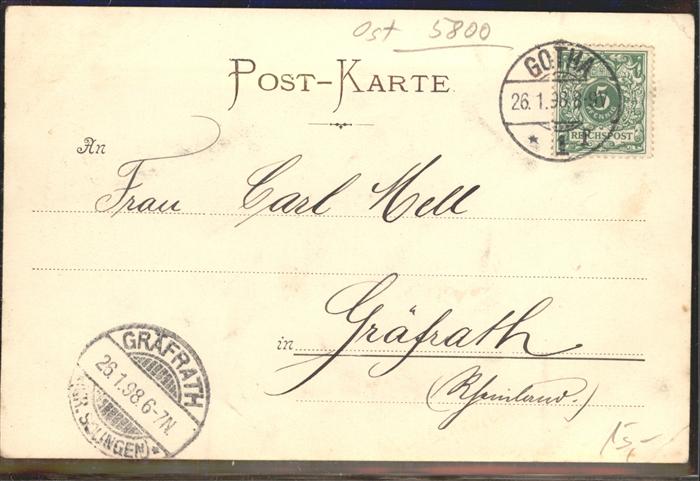 Ost 5800
POST-KARTE
GOTHA
26.1.98.8-9V
* 1
5
REICHSPOST
An
Frau Carl Mell
in Gräfrath
(Rheinland.)
GRÄFRATH
26.1.98.6-7N
(KR. SOLINGEN) *
15,-